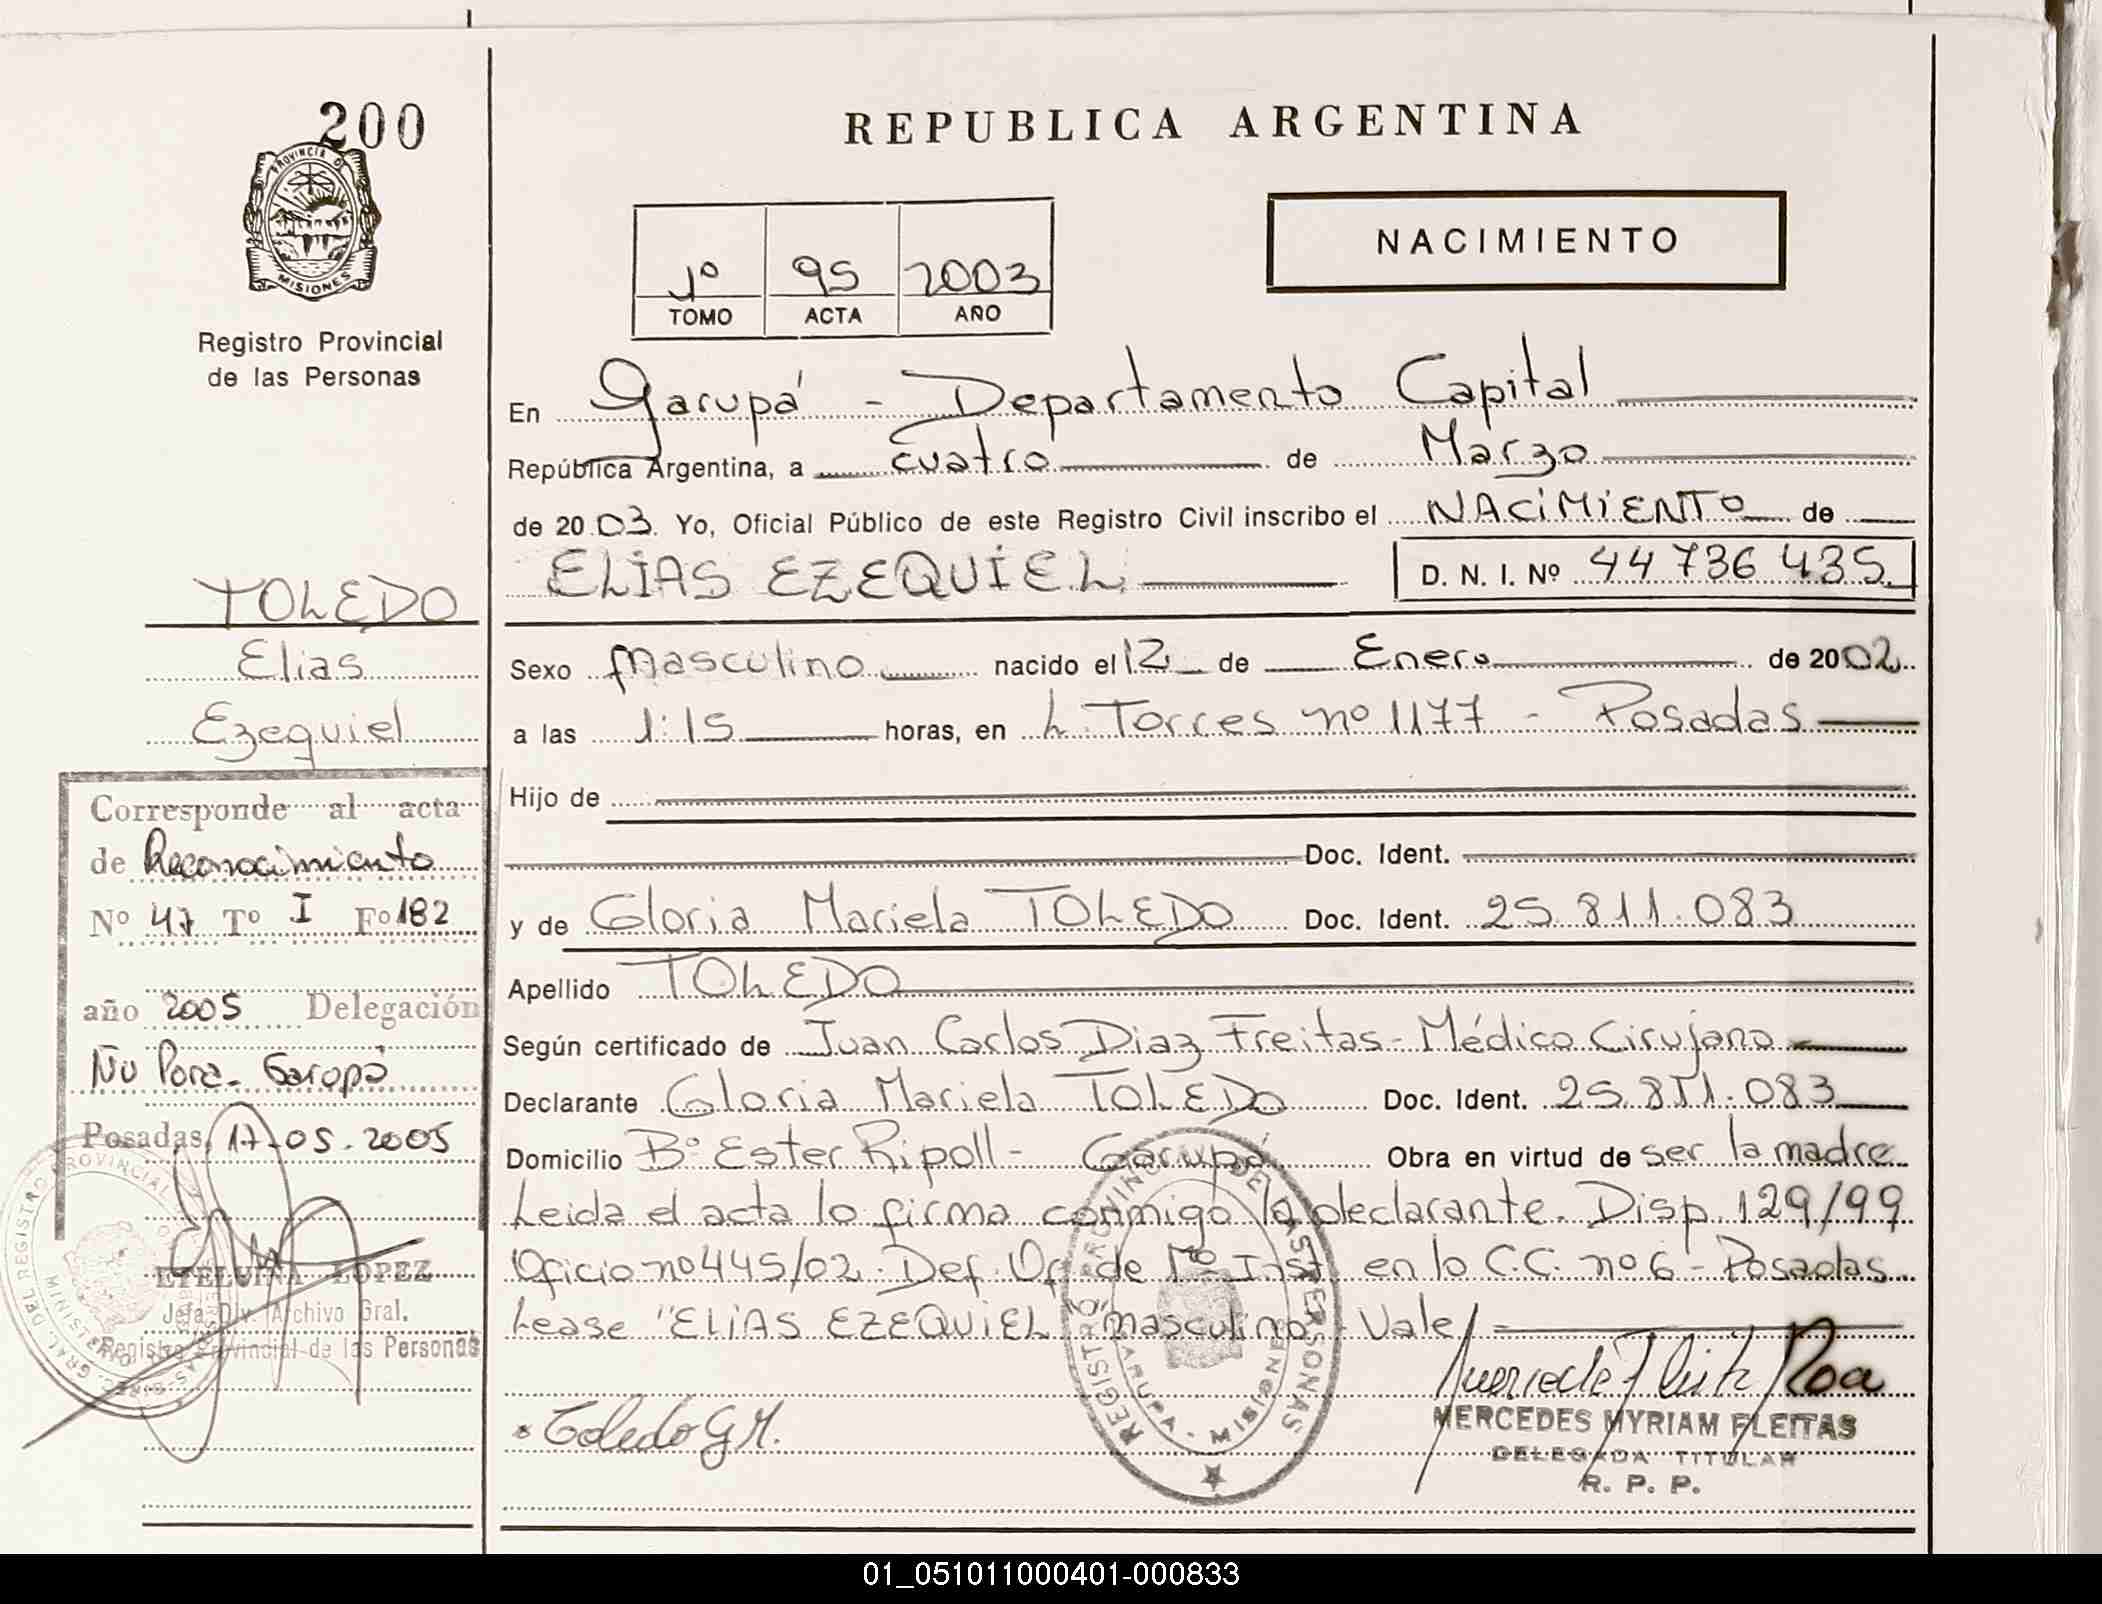 200
PROVINCIA DE
MISIONES
Registro Provincial
de las Personas
TOLEDO
Elias
Ezequiel
Corresponde al acta
de Reconocimiento
Nº 47 Tº I Fº 182
año 2005 Delegación
Ñu Pora - Garupá
Posadas, 17-05-2005
ETELVINA LOPEZ
Jefa Div. Archivo Gral.
Registro Provincial de las Personas
REPUBLICA ARGENTINA
NACIMIENTO
1º 95 2003
TOMO ACTA AÑO
En Garupá - Departamento Capital
República Argentina, a cuatro de Marzo
de 2003. Yo, Oficial Público de este Registro Civil inscribo el NACIMIENTO de
ELIAS EZEQUIEL D. N. I. Nº 44 736 435
Sexo masculino nacido el 12 de Enero de 2002
a las 1:15 horas, en L. Torres nº 1177 - Posadas
Hijo de
Doc. Ident.
y de Gloria Mariela TOLEDO Doc. Ident. 25.811.083
Apellido TOLEDO
Según certificado de Juan Carlos Diaz Freitas - Médico Cirujano
Declarante Gloria Mariela TOLEDO Doc. Ident. 25.811.083
Domicilio Bº Ester Ripoll - Garupá Obra en virtud de ser la madre
Leida el acta lo firma conmigo la declarante. Disp. 129/99
Oficio nº 445/02. Def. Of. de 1º Inst. en lo C.C. nº 6 - Posadas
Lease "ELIAS EZEQUIEL masculino Vale
* Toledo G M.
REGISTRO PROVINCIAL DE LAS PERSONAS
GARUPA - MISIONES
MERCEDES MYRIAM FLEITAS
DELEGADA TITULAR
R. P. P.
01_051011000401-000833